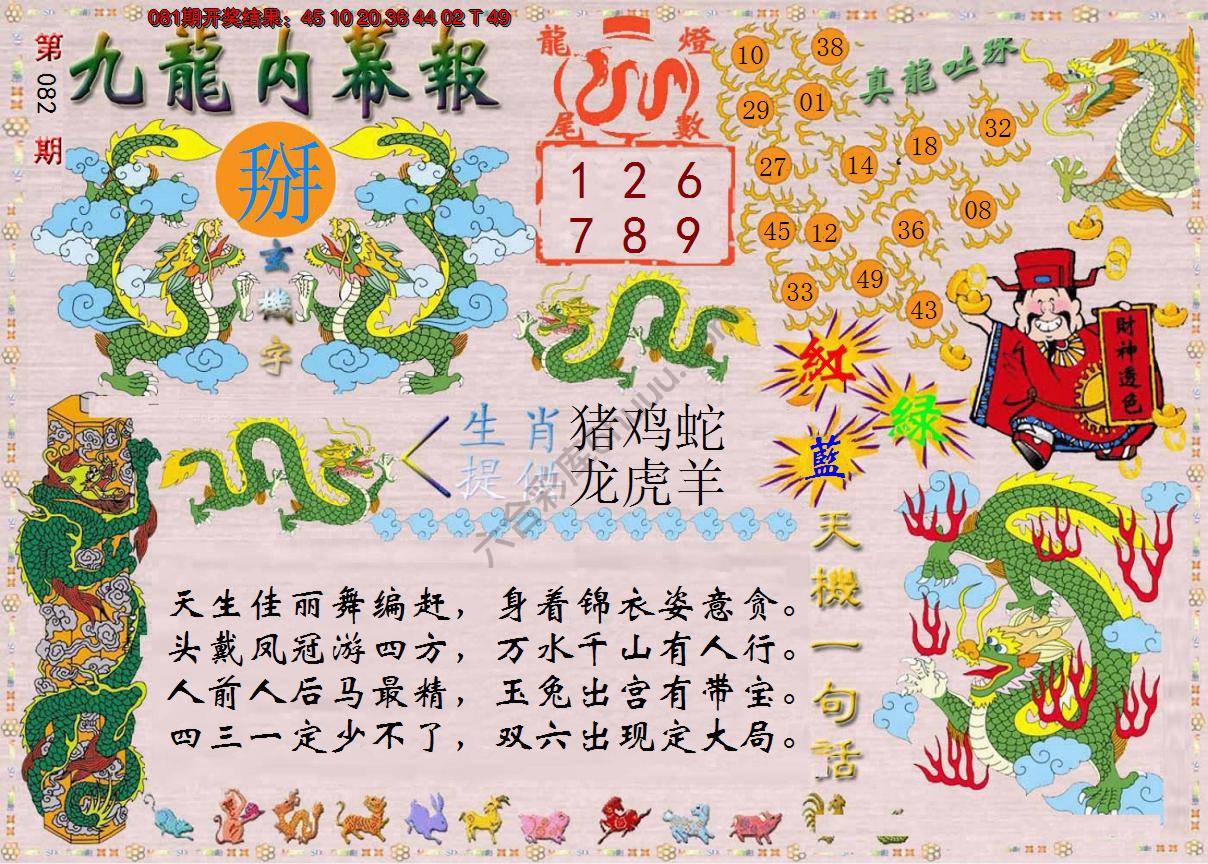 081期开奖结果：45 10 20 36 44 02 T 49
第
082
期
九龍内幕報
掰
玄
機
字
龍 燈
尾 數
1 2 6
7 8 9
真龍吐珠
10
38
29
01
32
18
27
14
08
45
12
36
49
33
43
財神透色
紅
綠
藍
生肖
提供
猪鸡蛇
龙虎羊
天生佳丽舞编赶，身着锦衣姿意贪。
头戴凤冠游四方，万水千山有人行。
人前人后马最精，玉兔出宫有带宝。
四三一定少不了，双六出现定大局。
天機一句話